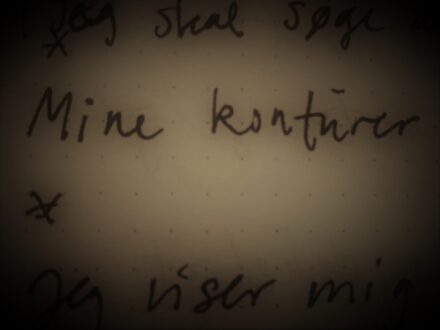 Jeg skal søge
*
Mine kontūrer
*
Jeg viser mig